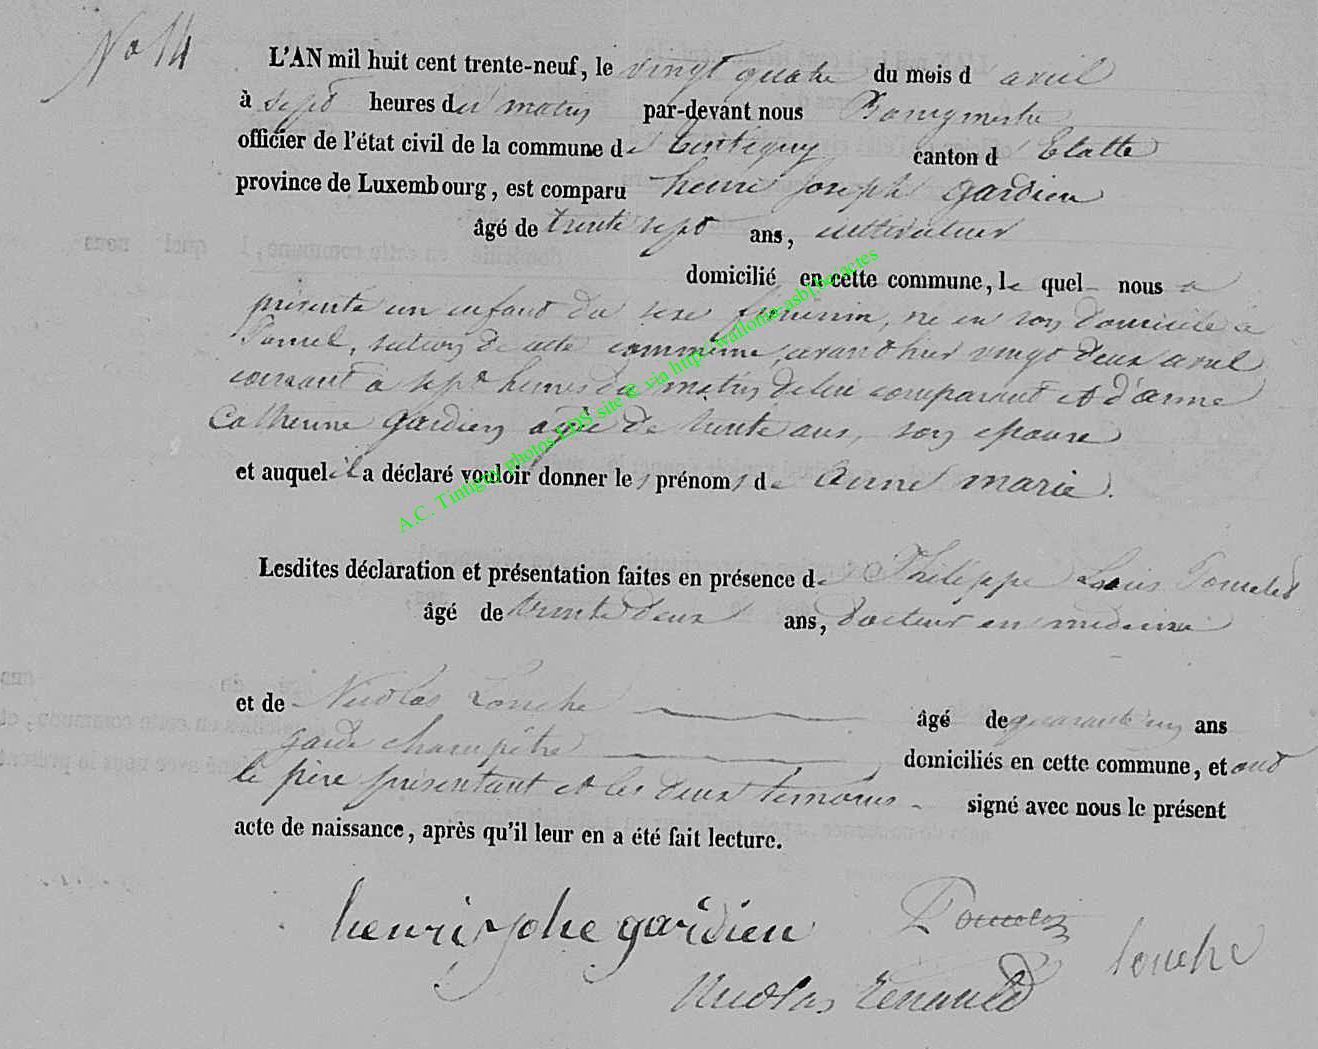 No 14
L'AN mil huit cent trente-neuf, le vingt quatre du mois d'avril
à sept heures du matin par-devant nous Bourgmestre
officier de l'état civil de la commune de Tintigny canton d'Etalle
province de Luxembourg, est comparu henri joseph gardien
âgé de trente sept ans, cultivateur
domicilié en cette commune, le quel nous a
présenté un enfant du sexe féminin, né en son domicile à
section de cette commune, avant hier vingt deux avril
courant à sept heures du matin de lui comparant et d'anne
Catherine gardien agée de trente ans, son épouse
et auquel il a déclaré vouloir donner les prénoms de Anne marie.
Lesdites déclaration et présentation faites en présence de Philippe Louis
âgé de trente deux ans, docteur en médecine
et de Nicolas Louche âgé de quarante un ans
garde champêtre domiciliés en cette commune, et ont
le père présentant et les deux témoins signé avec nous le présent
acte de naissance, après qu'il leur en a été fait lecture.
henri jophe gardien
Louche
Nicolas Renauld
A.C. Tintigny photos EDS site & via http://wallonia-asbl.be/actes